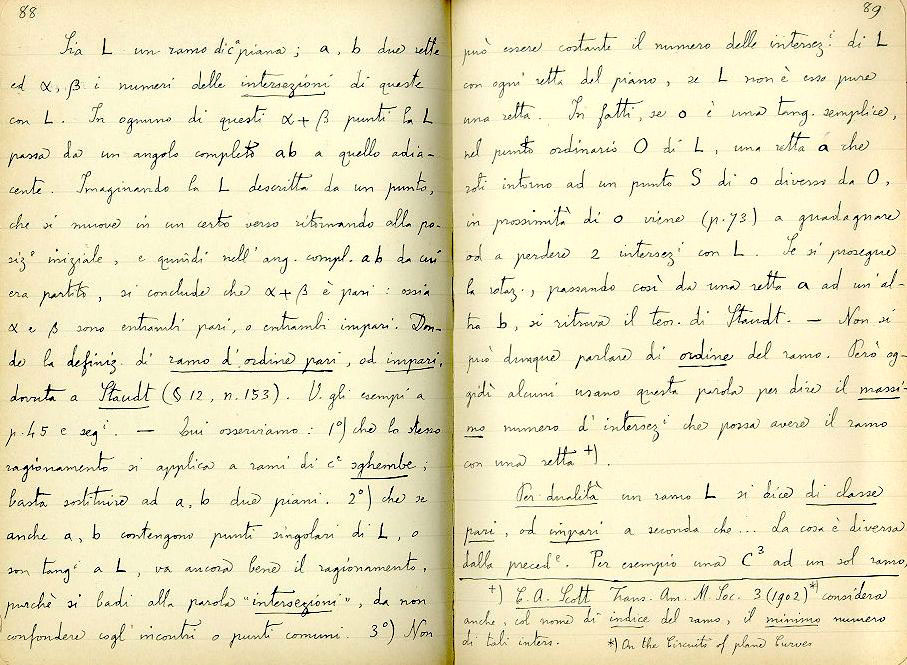 88
Sia L un ramo di cᵃ piana ; a, b due rette
ed α, β i numeri delle intersezioni di queste
con L. In ognuno di questi α+β punti la L
passa da un angolo completo ab a quello adia-
cente. Imaginando la L descritta da un punto,
che si muove in un certo verso ritornando alla po-
sizᵉ iniziale, e quindi nell'ang. compl. ab da cui
era partito, si conclude che α+β è pari : ossia
α e β sono entrambi pari, o entrambi impari. Don-
de la definiz. di ramo d'ordine pari, od impari,
dovuta a Staudt (§ 12, n. 153). V. gli esempi a
p. 45 e segⁱ. — Qui osserviamo : 1°) che lo stesso
ragionamento si applica a rami di cᵉ sghembe ;
basta sostituire ad a, b due piani. 2°) che se
anche a, b contengono punti singolari di L, o
son tangⁱ a L, va ancora bene il ragionamento,
purchè si badi alla parola "intersezioni", da non
confondere cogl'incontri o punti comuni. 3°) Non
89
può essere costante il numero delle intersezⁱ di L
con ogni retta del piano, se L non è essa pure
una retta. In fatti, se o è una tang. semplice,
nel punto ordinario O di L, una retta a che
roti intorno ad un punto S di o diverso da O,
in prossimità di o viene (p. 73) a guadagnare
od a perdere 2 intersezⁱ con L. Se si prosegue
la rotaz., passando così da una retta a ad un'al-
tra b, si ritrova il teor. di Staudt. — Non si
può dunque parlare di ordine del ramo. Però og-
gidì alcuni usano questa parola per dire il massi-
mo numero d'intersezⁱ che possa avere il ramo
con una retta +).
Per dualità un ramo L si dice di classe
pari, od impari a seconda che ... La cosa è diversa
dalla precedᵉ. Per esempio una C³ ad un sol ramo,
+) C. A. Scott Trans. Am. M. Soc. 3 (1902) *) considera
anche, col nome di indice del ramo, il minimo numero
di tali inters. *) On the Circuits of plane Curves